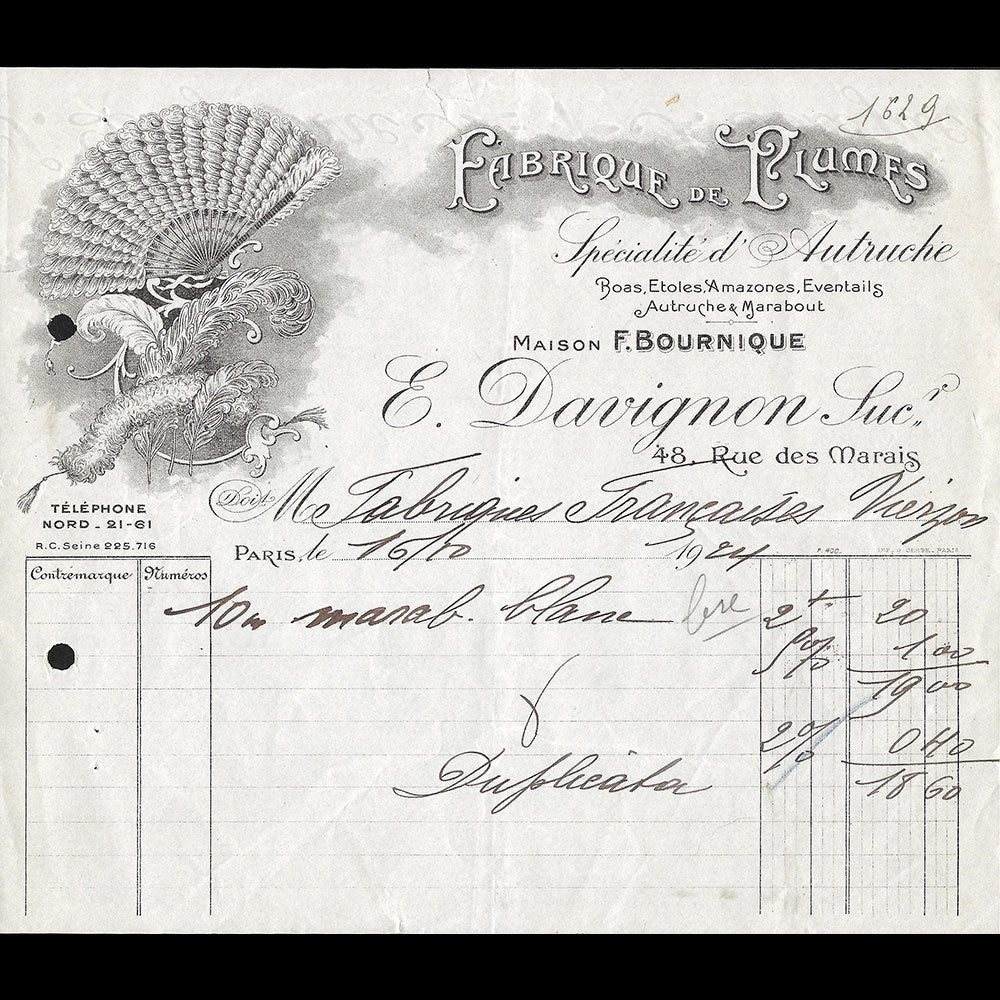 1629
FABRIQUE DE PLUMES
Spécialité d'Autruche
Boas, Etoles, Amazones, Eventails
Autruche & Marabout
MAISON F. BOURNIQUE
E. Davignon Sucr
48, Rue des Marais
TÉLÉPHONE
NORD - 21-61
R.C. Seine 225.716
Doit M Fabriques Françaises Vierzon
PARIS, le 16/10 1924
F. 400. IMP. G. GERBE - PARIS
Contremarque Numéros
10m marab. blanc 2 20
5% 1 00
19 00
2% 0 40
Duplicata 18 60